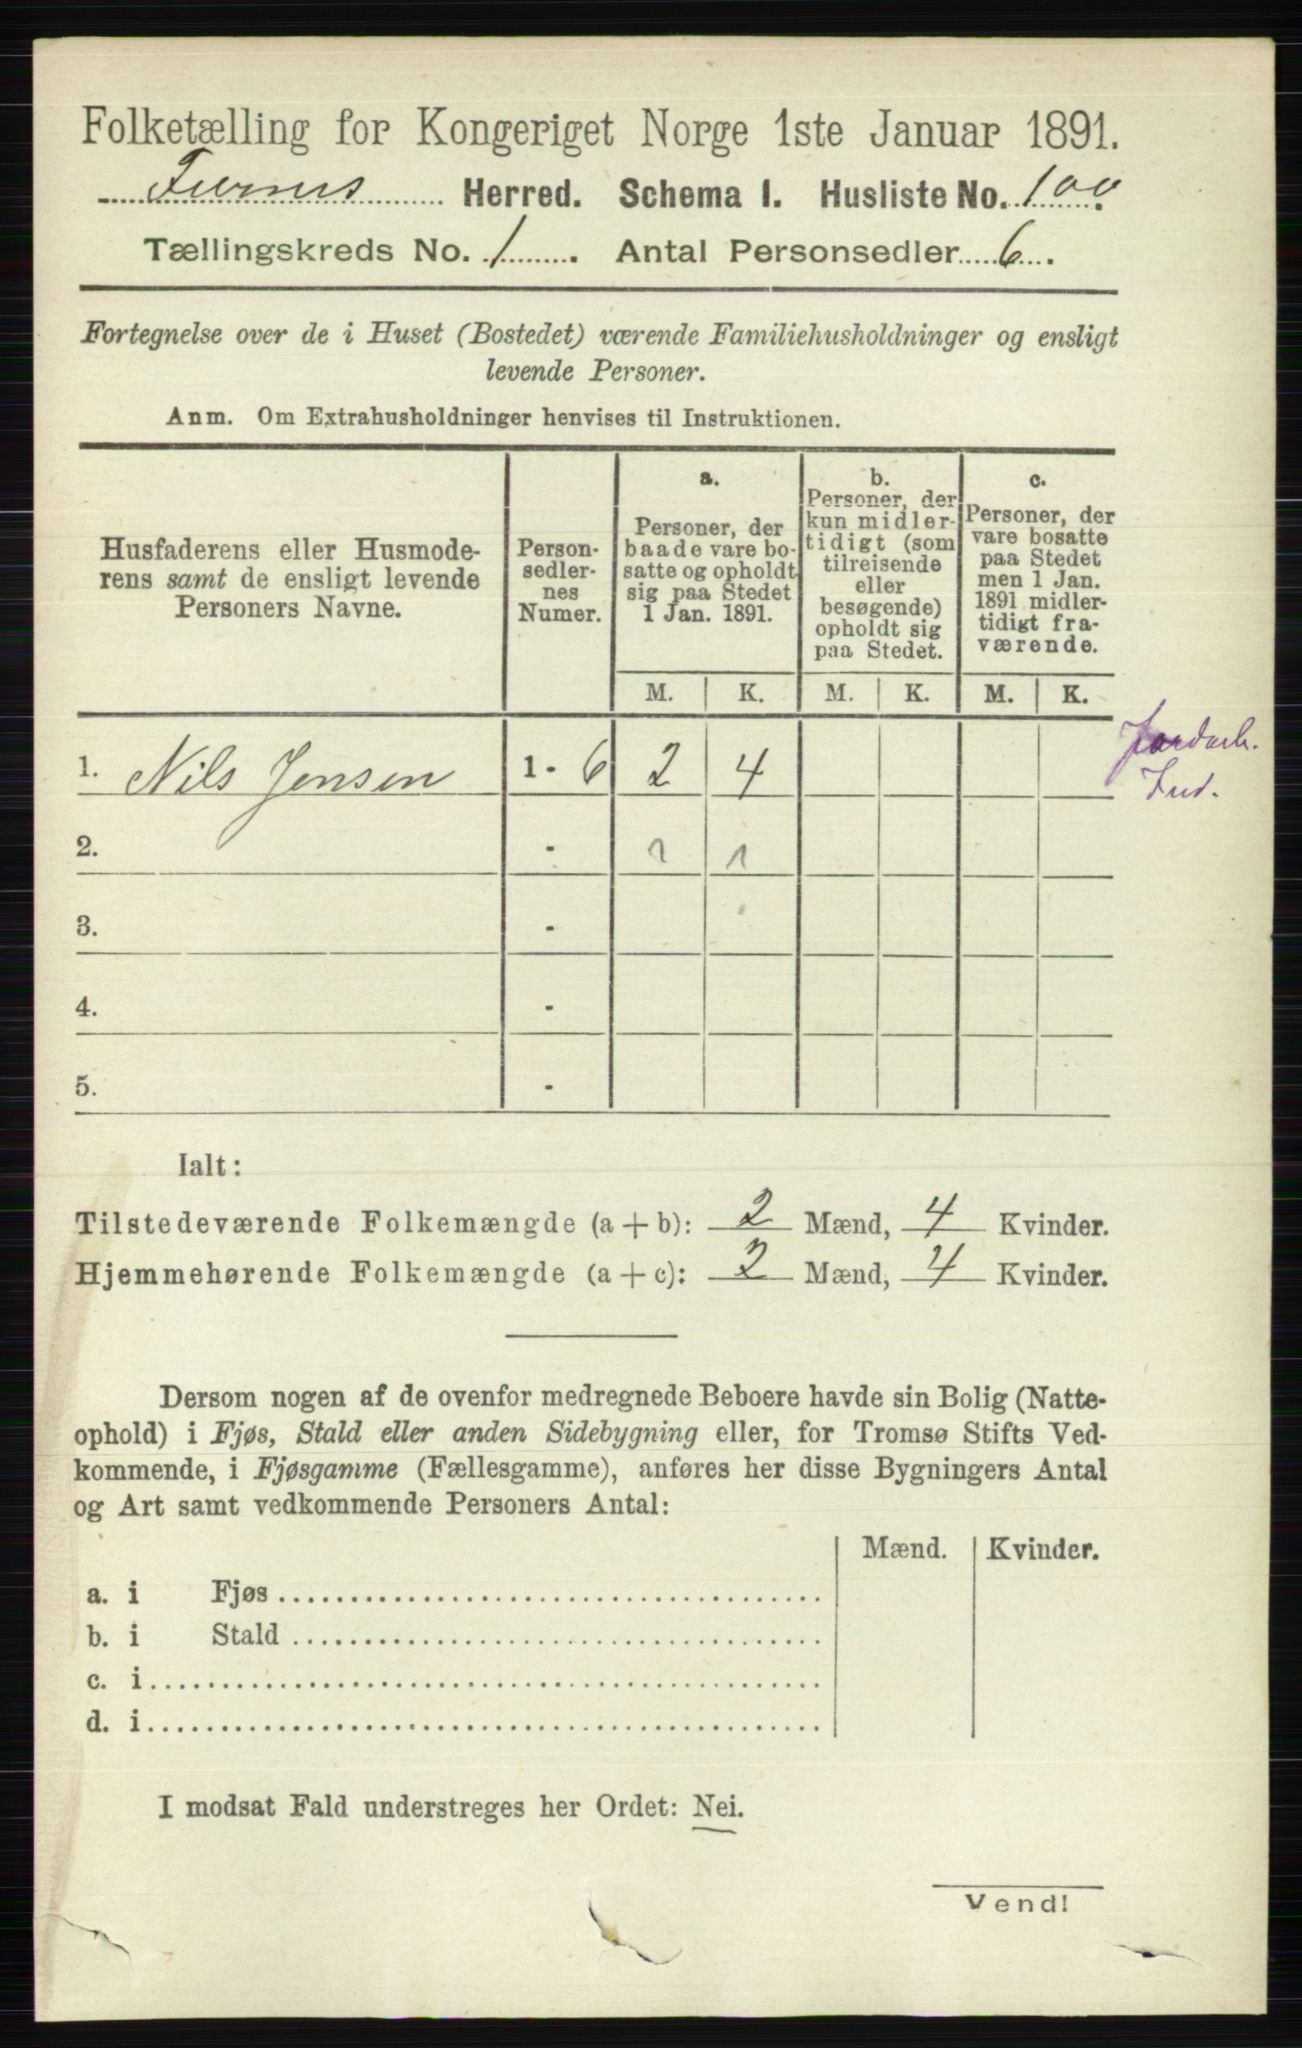 Folketælling for Kongeriget Norge 1ste Januar 1891.
Furnes Herred. Schema I. Husliste No. 100.
Tællingskreds No. 1. Antal Personsedler 6.
Fortegnelse over de i Huset (Bostedet) værende Familiehusholdninger og ensligt
levende Personer.
Anm. Om Extrahusholdninger henvises til Instruktionen.
Husfaderens eller Husmode-
rens samt de ensligt levende
Personers Navne.
Person-
sedler-
nes
Numer.
a.
Personer, der
baade vare bo-
satte og opholdt
sig paa Stedet
1 Jan. 1891.
b.
Personer, der
kun midler-
tidigt (som
tilreisende
eller
besøgende)
opholdt sig
paa Stedet.
c.
Personer, der
vare bosatte
paa Stedet
men 1 Jan.
1891 midler-
tidigt fra-
værende.
M. K. M. K. M. K.
1. Nils Jensen 1 - 6 2 4
Jordarb.
Ind.
2. - 1 1
3. -
4. -
5. -
Ialt:
Tilstedeværende Folkemængde (a + b): 2 Mænd, 4 Kvinder.
Hjemmehørende Folkemængde (a + c): 2 Mænd, 4 Kvinder.
Dersom nogen af de ovenfor medregnede Beboere havde sin Bolig (Natte-
ophold) i Fjøs, Stald eller anden Sidebygning eller, for Tromsø Stifts Ved-
kommende, i Fjøsgamme (Fællesgamme), anføres her disse Bygningers Antal
og Art samt vedkommende Personers Antal:
Mænd. Kvinder.
a. i Fjøs
b. i Stald
c. i
d. i
I modsat Fald understreges her Ordet: Nei.
Vend!